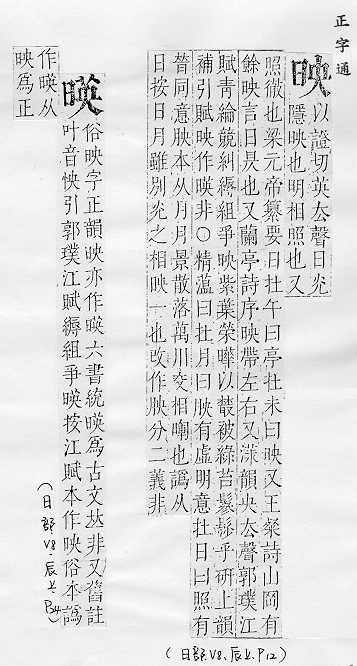 正字通
映
以證切英去聲日光
隱映也明相照也又
照徹也梁元帝纂要日在午曰亭在未曰映又王粲詩山岡有
餘映言日昃也又蘭亭詩序映帶左右又漾韻央去聲郭璞江
賦青綸競糾縟組爭映紫葉榮曄以叢被綠苔鬖髿乎研上韻
補引賦映作暎非○精薀曰在月曰胦有虛明意在日曰照有
同意胦本从月月景散落萬川交相也譌从
日按日月雖別光之相映一也改作胦分二義非
(日部V8、辰上.P12)
暎
俗映字正韻映亦作暎六書統暎爲古文𠀤非又舊註
叶音怏引郭璞江賦縟組爭暎按江賦本作映俗本譌
(日部V8.辰上.P4)
作暎从
映爲正